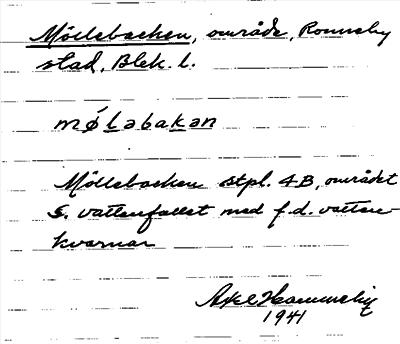 Möllebacken, område, Ronneby
stad, Blek. l.
møl̲əbak̲an
Möllebacken stpl. 4B, området
S. vattenfallet med f.d. vatten-
kvarnar
Axel
1941